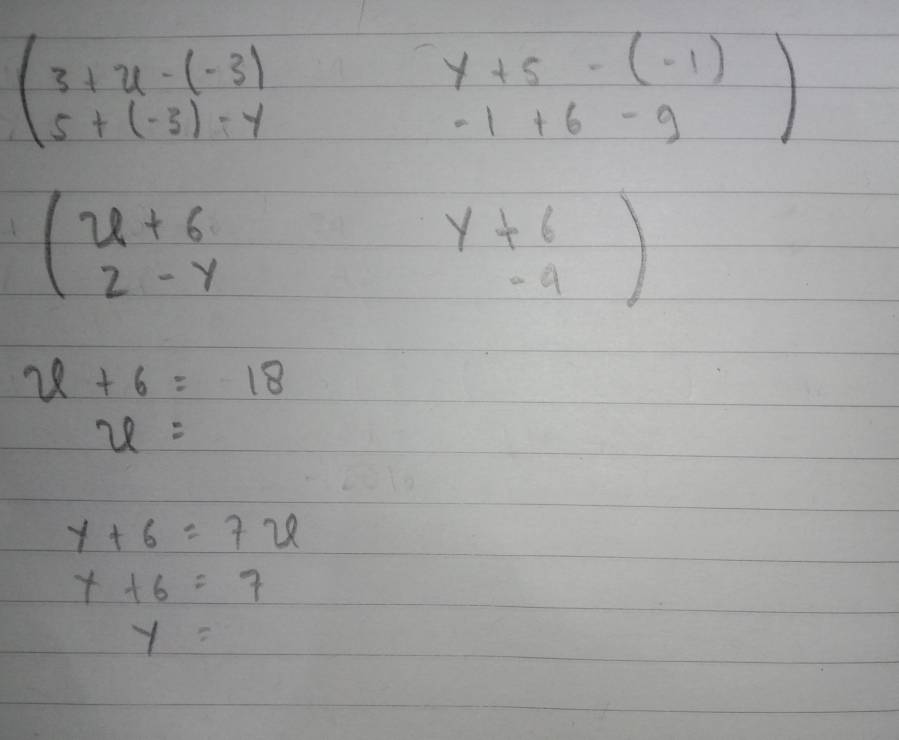 3 + x - (-3) y + 5 - (-1)
5 + (-3) - y -1 + 6 - 9
x + 6 y + 6
2 - y -4
x + 6 = 18
x =
y + 6 = 7x
y + 6 = 7
y =